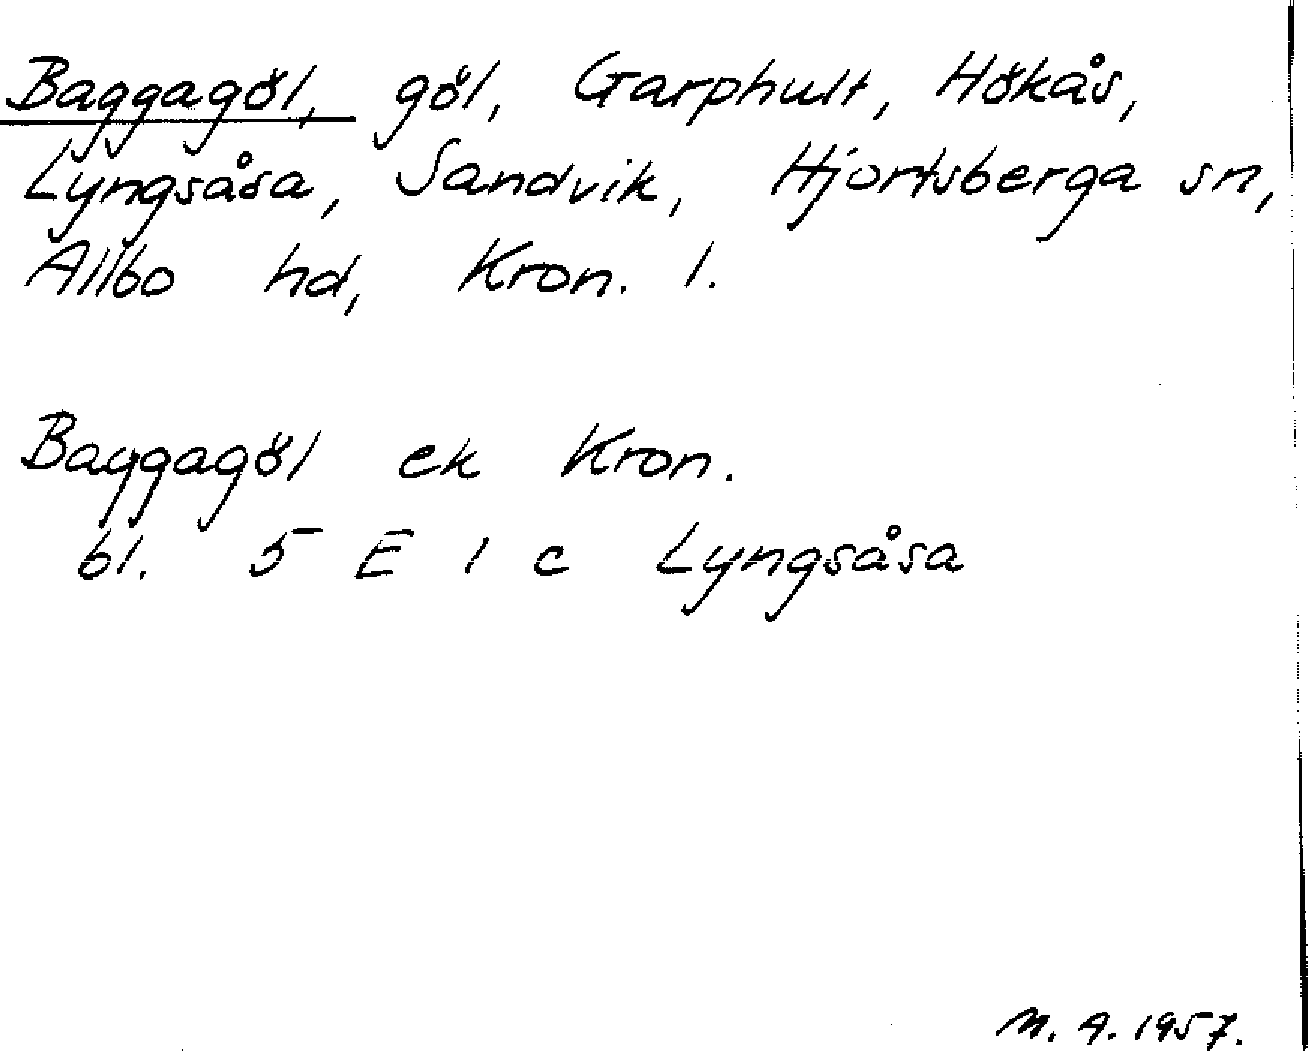 Baggagöl, göl, Garphult, Hökås,
Lyngsåsa, Sandvik, Hjortsberga sn,
Allbo hd, Kron. l.
Baggagöl ek Kron.
bl. 5 E 1 c Lyngsåsa
M. A. 1957.